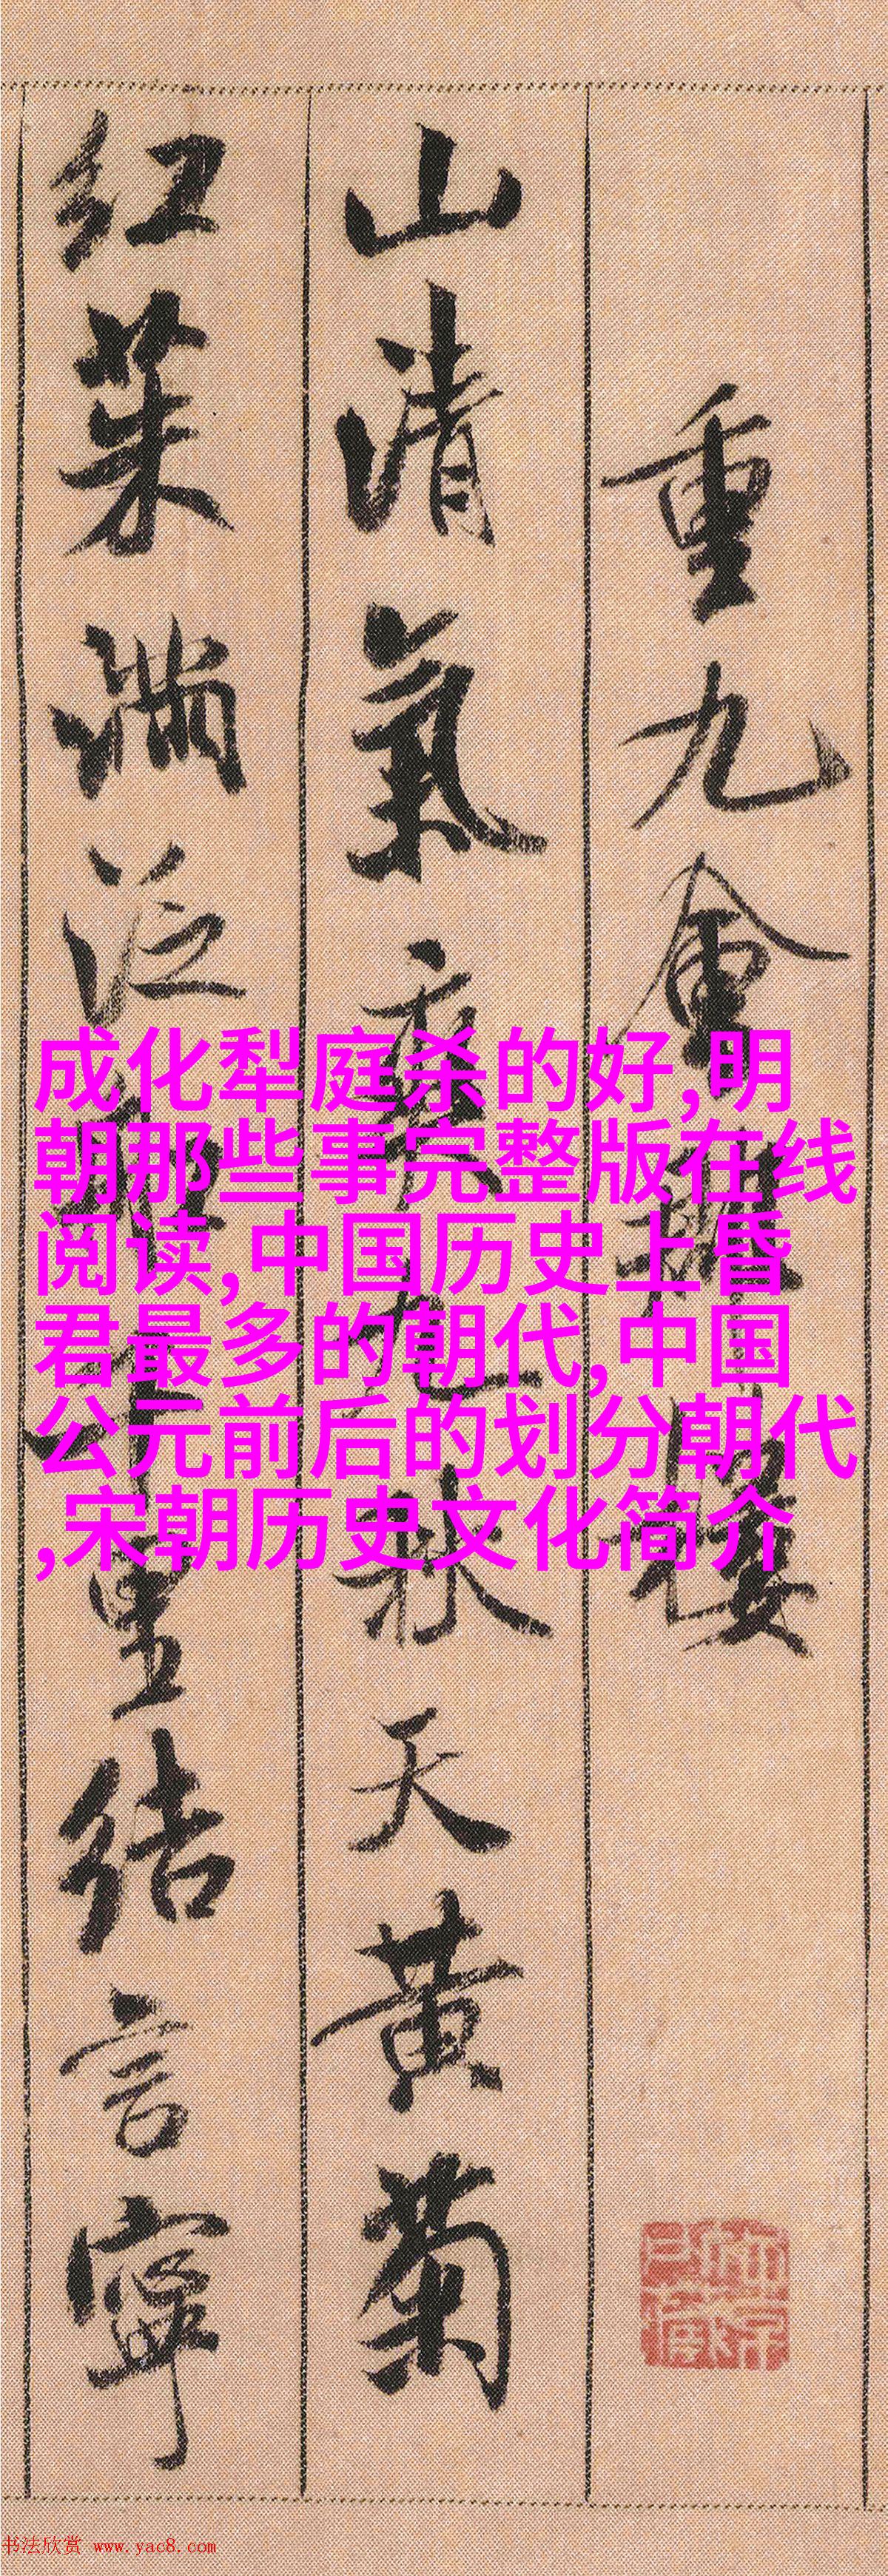 重九會郡樓
山清氣爽九秋天黃菊
紅茱滿泛船千里結言寧
成化犁庭杀的好,明
朝那些事完整版在线
阅读,中国历史上昏
君最多的朝代,中国
公元前后的划分朝代
,宋朝历史文化简介
书法欣赏 www.yac8.com